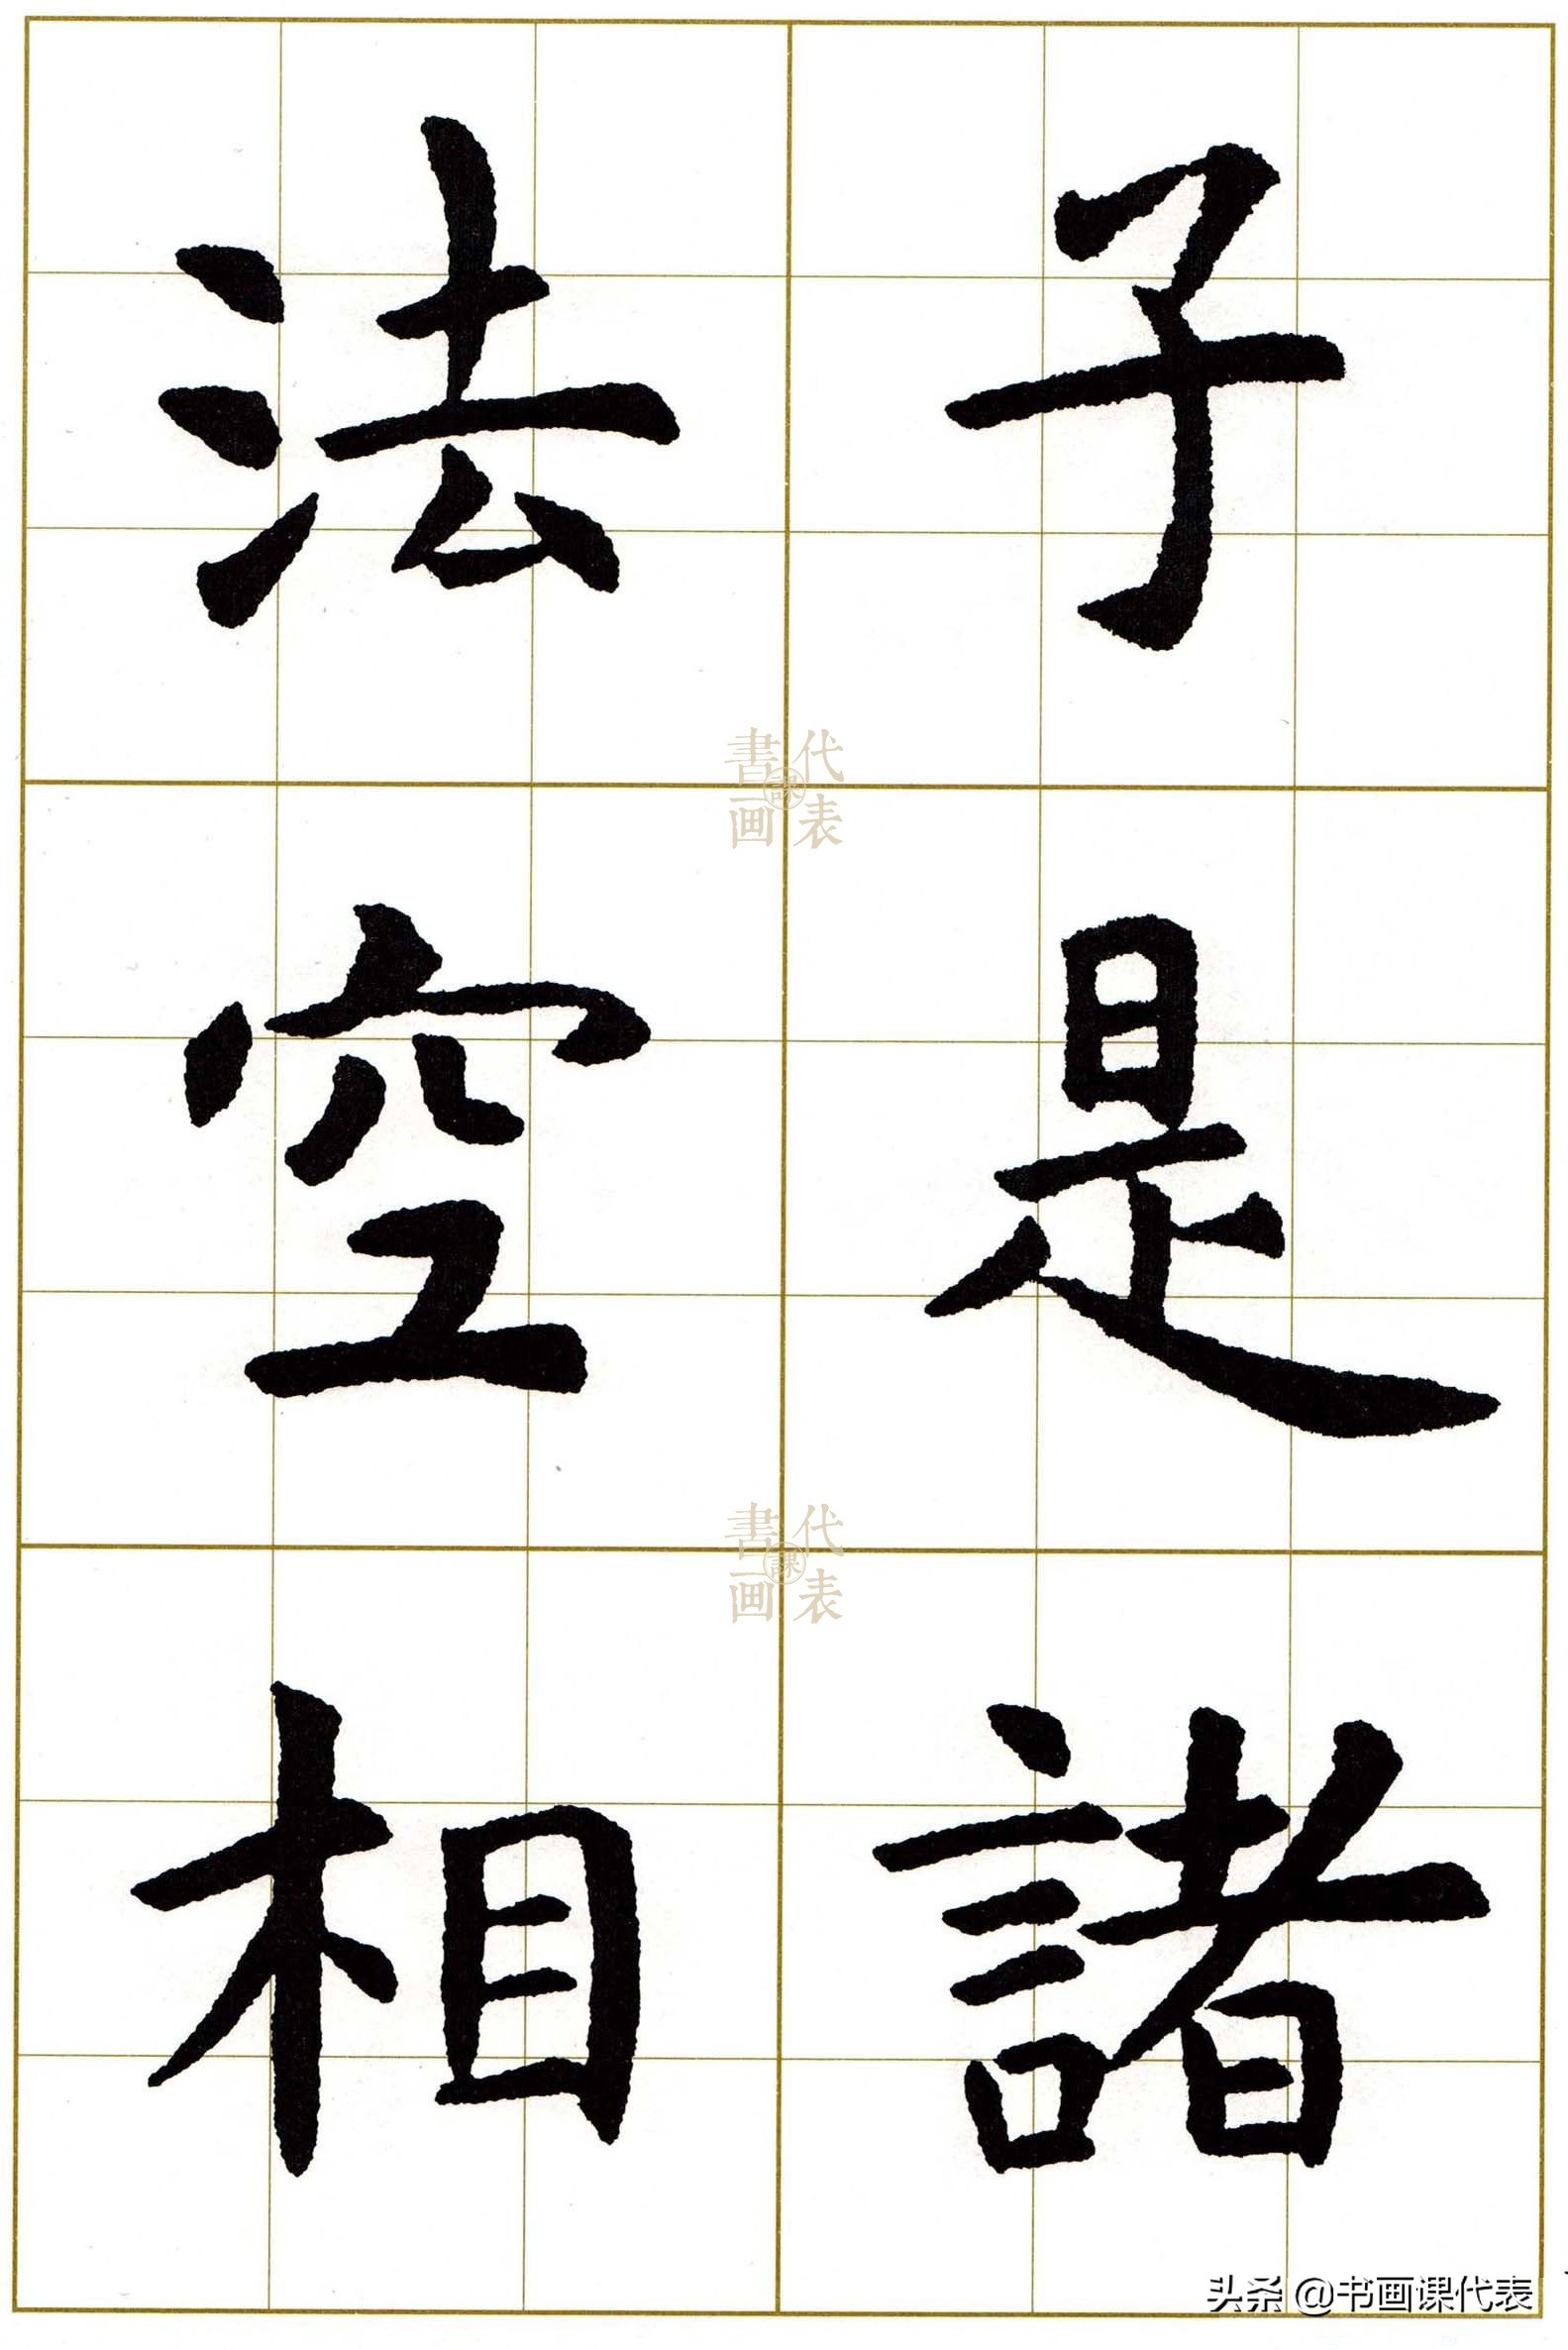 子是諸
法空相
書画課代表
書画課代表
头条 @书画课代表